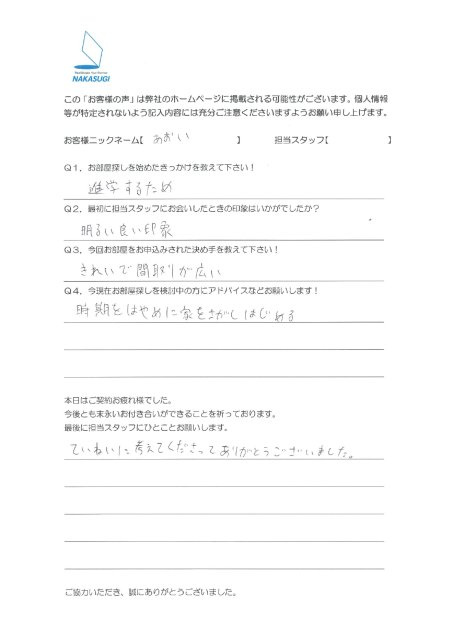 NAKASUGI
この「お客様の声」は弊社のホームページに掲載される可能性がございます。個人情報
等が特定されないよう記入内容には充分ご注意くださいますようお願い申し上げます。
お客様ニックネーム【 あおい 】 担当スタッフ【 】
Q1．お部屋探しを始めたきっかけを教えて下さい！
進学するため
Q2．最初に担当スタッフにお会いしたときの印象はいかがでしたか？
明るい良い印象
Q3．今回お部屋をお申込みされた決め手を教えて下さい！
きれいで間取りが広い
Q4．今現在お部屋探しを検討中の方にアドバイスなどお願いします！
時期をはやめに家をさがしはじめる
本日はご契約お疲れ様でした。
今後とも末永いお付き合いができることを祈っております。
最後に担当スタッフにひとことお願いします。
ていねいに考えてくださってありがとうございました。
ご協力いただき、誠にありがとうございました。